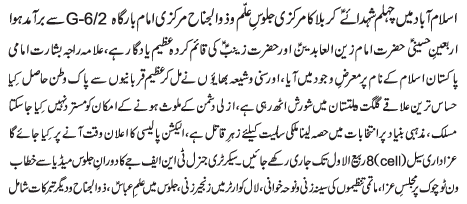 اسلام آباد میں چہلم شہدائے کربلا کا مرکزی جلوس علم و ذوالجناح مرکزی امام بارگاہ G-6/2 سے برآمد ہوا
اربعین حسینیؑ حضرت امام زین العابدینؑ اور حضرت زینبؑ کی قائم کردہ عظیم یادگار ہے، علامہ راجہ بشارت امامی
پاکستان اسلام کے نام پر معرض وجود میں آیا، اور سنی و شیعہ بھائیوں نے مل کر عظیم قربانیوں سے پاک وطن حاصل کیا
حساس ترین علاقے گلگت بلتستان میں شورش اٹھ رہی ہے، ازلی دشمن کے ملوث ہونے کے امکان کو مسترد نہیں کیا جاسکتا
مسلک، مذہبی بنیاد پر انتخابات میں حصہ لینا ملکی سلامیت کیلئے زہر قاتل ہے، الیکشن پالیسی کا اعلان وقت آنے پر کیا جائے گا
عزاداری سیل (cell) 8 ربیع الاول تک جاری رکھے جائیں۔ سیکرٹری جنرل ٹی این ایف جے کا دوران جلوس میڈیا سے خطاب
ون ٹو چوک پر مجلس عزا، ماتمی تنظیموں کی سینہ زنی و نوحہ خوانی، لال کوارٹر میں زنجیر زنی، جلوس میں علم عباسؑ، ذوالجناح و دیگر تبرکات شامل